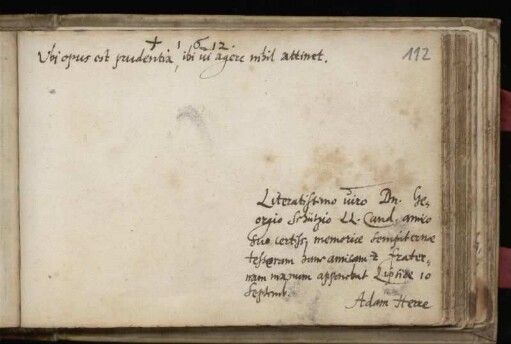 1612.
Ubi opus est prudentia, ibi vi agere nihil attinet.
112
Literatissimo viro Dn. Ge,,
orgio Schützio LL. Cand. amico
suo certiss; memoriæ sempiternæ
tesseram hanc amicam & frater,,
nam manum apponebat Lipsiæ 10
Septemb.
Adam Herre